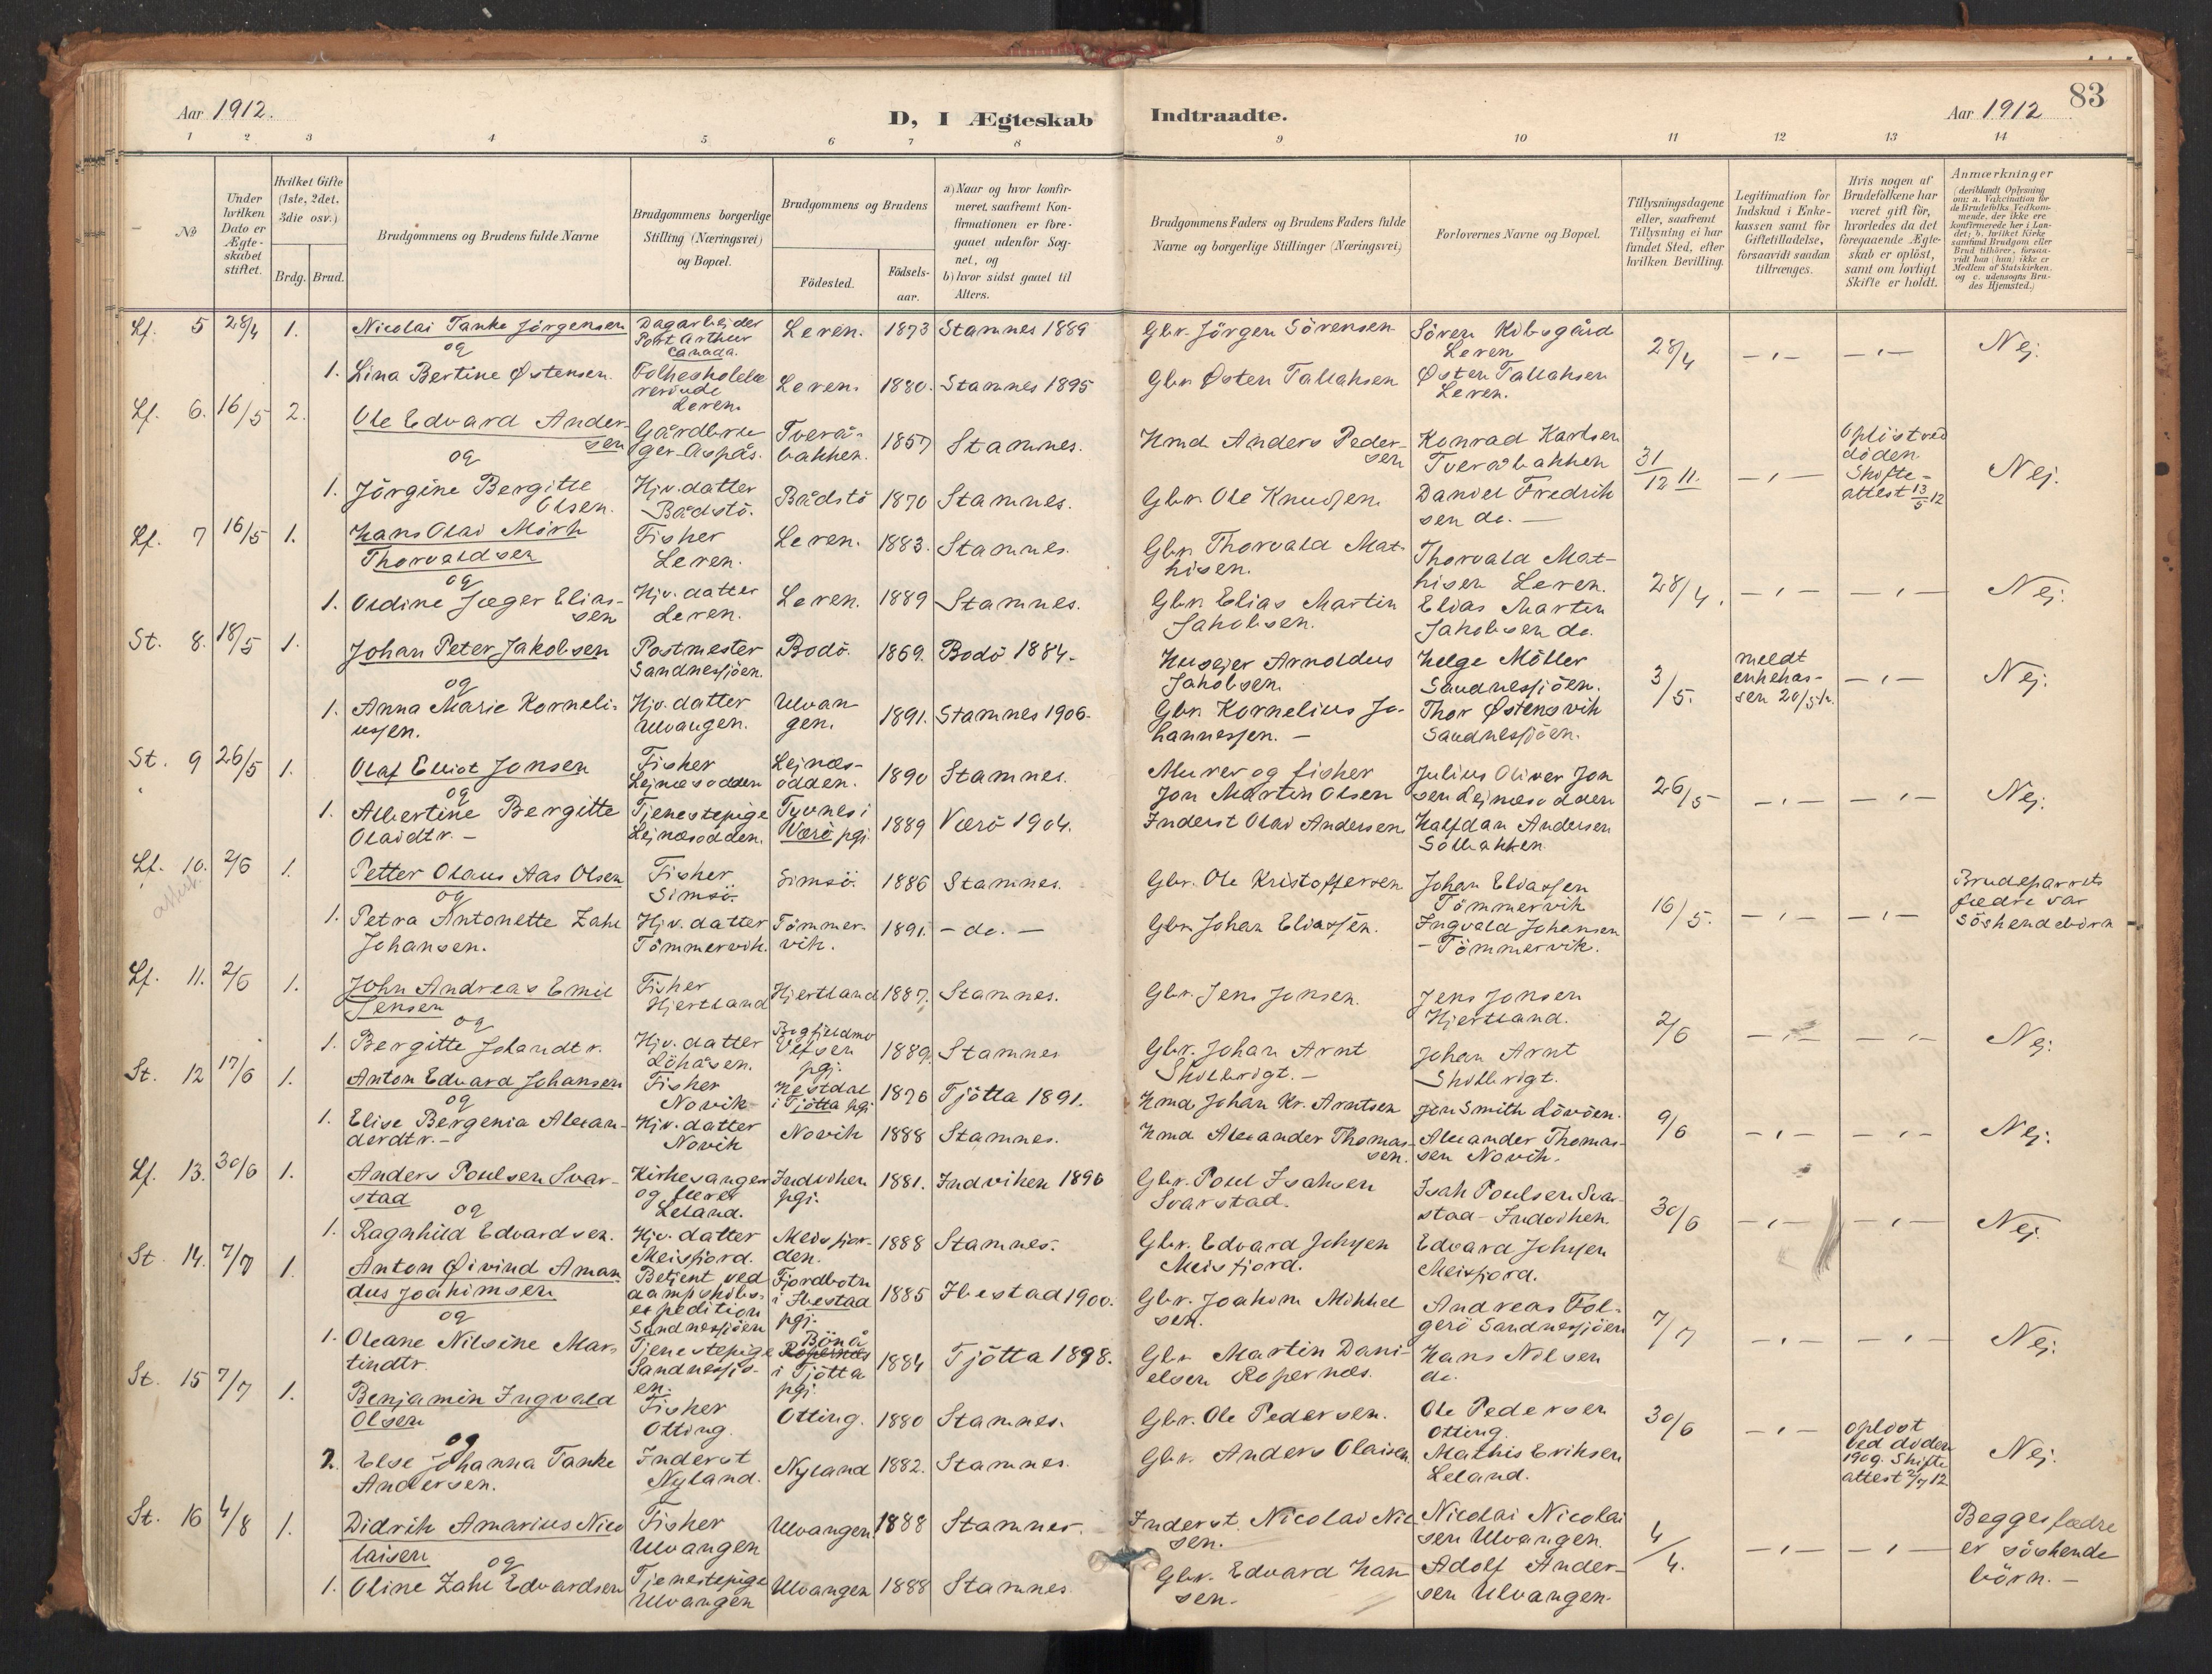 83
Aar 1912.
D, I Ægteskab Indtraadte.
Aar 1912
1 2 3 4 5 6 7 8 9 10 11 12 13 14
№
Under hvilken Dato er Ægteskabet stiftet.
Hvilket Gifte (1ste, 2det, 3die osv.)
Brdg. Brud.
Brudgommens og Brudens fulde Navne
Brudgommens borgerlige Stilling (Næringsvei) og Bopæl.
Brudgommens og Brudens
Födested.
Födsels-aar.
a) Naar og hvor konfirmeret, saafremt Konfirmationen er foregaaet udenfor Sognet, og
b) hvor sidst gaaet til Alters.
Brudgommens Faders og Brudens Faders fulde Navne og borgerlige Stillinger (Næringsvei)
Forlovernes Navne og Bopæl.
Tillysningsdagene eller, saafremt Tillysning ei har fundet Sted, efter hvilken Bevilling.
Legitimation for Indskud i Enkekassen samt for Giftetilladelse, forsaavidt saadan tiltrænges.
Hvis nogen af Brudefolkene har været gift för, hvorledes da det foregaaende Ægteskab er oplöst, samt om lovligt Skifte er holdt.
Anmærkninger
(deriblandt Oplysning om: a. Vakcination for de Brudefolks Vedkommende, der ikke ere konfirmerede her i Landet; b. hvilket Kirkesamfund Brudgom eller Brud tilhörer, forsaavidt han (hun) ikke er Medlem af Statskirken, og c. udensogns Brudes Hjemsted.)
Lf. 5 28/4 1. Nicolai Tanke Jörgensen Dagarbejder Port Arthur Canada. Leren. 1873 Stamnes 1889 Gbr. Jörgen Sörensen Sören Kibsgård Leren 28/4 — Nej.
og
1. Lina Bertine Østensen. Folkeskolelærerinde Leren. Leren. 1880. Stamnes 1895 Gbr. Østen Tallaksen Østen Tallaksen Leren.
Lf. 6. 16/5 2. Ole Edvard Andersen Gårdbruger Aspås. Tveråbakken. 1857 Stamnes. Kmd Anders Pedersen Konrad Karlsen Tveråbakken 31/12 11. — Oplöst ved döden Skifteattest 13/5 12 Nej.
og
1. Jörgine Bergitte Olsen. Hjv. datter Bådstö. Bådstö 1870 Stamnes. Gbr. Ole Knudsen Daniel Fredriksen do. —
Lf. 7 16/5 1. Hans Olai Mörk Thorvaldsen Fisker Leren. Leren. 1883. Stamnes. Gbr. Thorvald Mathisen. Thorvald Mathisen Leren. 28/4. — Nej.
og
1. Oldine Jæger Eliassen Hjv. datter Leren. Leren. 1889 Stamnes. Gbr. Elias Martin Jakobsen. Elias Martin Jakobsen do.
St. 8. 18/5 1. Johan Peter Jakobsen Postmester Sandnessjöen. Bodö. 1869. Bodö 1884. Husejer Arnoldus Jakobsen. Helge Möller Sandnessjöen. 3/5. meldt enkekassen 20/5 12. — Nej.
og
1. Anna Marie Korneliussen. Hjv. datter Ulvangen. Ulvangen. 1891. Stamnes 1906. Gbr. Kornelius Johannessen. — Thor Østensvik Sandnessjöen.
St. 9 26/5 1. Olaf Elliot Jonsen Fisker Lejnæsodden Lejnæsodden. 1890 Stamnes. Murer og fisker Jon Martin Olsen Julius Oliver Jonsen Lejnæsodden 26/5 — Nej.
og
1. Albertine Bergitte Olaidtr. — Tjenestepige Lejnæsodden. Tyvnes i Værö pgj. 1889 Værö 1904. Inderst Olai Andersen Halfdan Andersen Solbakken
Lf. 10. 2/6 1. Petter Olaus Aas Olsen Fisker Simsö. Simsö. 1886 Stamnes. Gbr. Ole Kristoffersen Johan Eliassen Tömmervik 16/5. — Brudeparrets fædre var söskendebörn
attest.
og
1. Petra Antonette Zahl Johansen. Hjv. datter Tömmervik. Tömmervik. 1891. — do. — Gbr. Johan Eliassen. Ingvald Johansen — Tömmervik.
Lf. 11. 2/6 1. John Andreas Emil Jensen Fisker Hjertland Hjertland 1887. Stamnes. Gbr. Jens Jonsen. Jens Jonsen Hjertland. 2/6 — Nej.
og
1. Bergitte Johandtr. Hjv. datter Löhåsen. Bogfjeldmo Vefsen pgj. 1889. Stamnes Gbr. Johan Arnt Skolbrigt. — Johan Arnt Skolbrigt.
St. 12 17/6 1. Anton Edvard Johansen Fisker Novik Hestdal i Tjötta pgj. 1876 Tjötta 1891. Kmd Johan Kr. Arntsen Jon Smith Lövöen. 9/6 — Nej.
og
1. Elise Bergenia Alexanderdtr. — Hjv. datter Novik Novik 1888 Stamnes. Kmd Alexander Thomassen. Alexander Thomassen Novik.
Lf. 13. 30/6 1. Anders Poulsen Svarstad Kirkesanger og lærer Leland. Indviken pgj. 1881. Indviken 1896 Gbr. Poul Isaksen Svarstad. Isak Poulsen Svarstad – Indviken. 30/6 — Nej.
og
1. Ragnhild Edvardsen. Hjv. datter Meisfjord. Meisfjorden. 1888 Stamnes. Gbr. Edvard Johsen Meisfjord. Edvard Johsen Meisfjord.
St. 14. 7/7 1. Anton Øivind Amandus Joakimsen Betjent ved dampskibsexpedition Sandnessjöen Fjordbotn i Ibestad pgj. 1885 Ibestad 1900. Gbr. Joakim Mikkelsen. Andreas Folgerö Sandnessjöen 7/7 — Nej.
og
1. Oleane Nilsine Martindtr. Tjenestepige Sandnessjöen. Bönå Ropernes i Tjötta pgj. 1884 Tjötta 1898. Gbr. Martin Danielsen Ropernæs. Hans Nilsen do.
St. 15 7/7 1. Benjamin Ingvald Olsen Fisker Otting. Otting. 1880 Stamnes. Gbr. Ole Pedersen. Ole Pedersen Otting. 30/6 — oplöst ved döden 1909. Skifteattest 2/7 12 Nej.
og
2. Else Johanna Tanke Andersen. Inderst Nyland. Nyland 1882. Stamnes. Gbr. Anders Olaisen Mathis Eriksen Leland.
St. 16 4/8 1. Didrik Amarius Nicolaisen Fisker Ulvangen Ulvangen 1888 Stamnes. Inderst. Nicolai Nilsen. Nicolai Nicolaisen Ulvangen. 4/4. — Begges fædre er söskendebörn. —
og
1. Oline Zahl Edvardsen Tjenestepige Ulvangen Ulvangen 1888 Stamnes. Gbr. Edvard Hansen. Adolf Andersen Ulvangen.